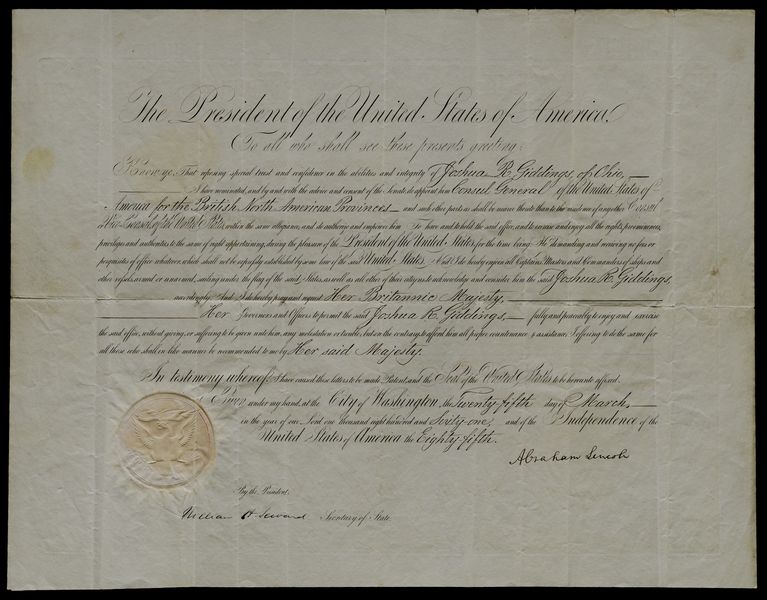 The President of the United States of America,
To all who shall see these presents greeting:
Know ye, That reposing special trust and confidence in the abilities and integrity of Joshua R. Giddings, of Ohio,—
I have nominated, and by and with the advice and consent of the Senate do appoint him Consul General of the United States of
America for the British North American Provinces— and such other parts as shall be nearer thereto than to the residence of any other Consul
or Vice-Consul of the United States, within the same allegiance, and do authorize and empower him To have and to hold the said office, and to exercise and enjoy all the rights, preeminences,
privileges and authorities to the same of right appertaining, during the pleasure of the President of the United States, for the time being: He demanding and receiving no fees or
perquisites of office whatever, which shall not be expressly established by some law of the said United States. And I do hereby enjoin all Captains, Masters and Commanders of ships and
other vessels, armed or unarmed, sailing under the flag of the said States, as well as all other of their citizens, to acknowledge and consider him the said Joshua R. Giddings,
accordingly. And I do hereby pray and request Her Britannic Majesty,
Her Governors and Officers to permit the said Joshua R. Giddings,— fully and peaceably to enjoy and exercise
the said office, without giving, or suffering to be given unto him, any molestation or trouble, but on the contrary to afford him all proper countenance & assistance; I offering to do the same for
all those who shall in like manner be recommended to me by Her said Majesty.
In testimony whereof, I have caused these letters to be made Patent, and the Seal of the United States to be hereunto affixed.
Given under my hand, at the City of Washington, the Twenty-fifth day of March,—
in the year of our Lord one thousand eight hundred and Sixty-one, and of the Independence of the
United States of America the Eighty-fifth.
Abraham Lincoln
By the President.
William H. Seward Secretary of State.